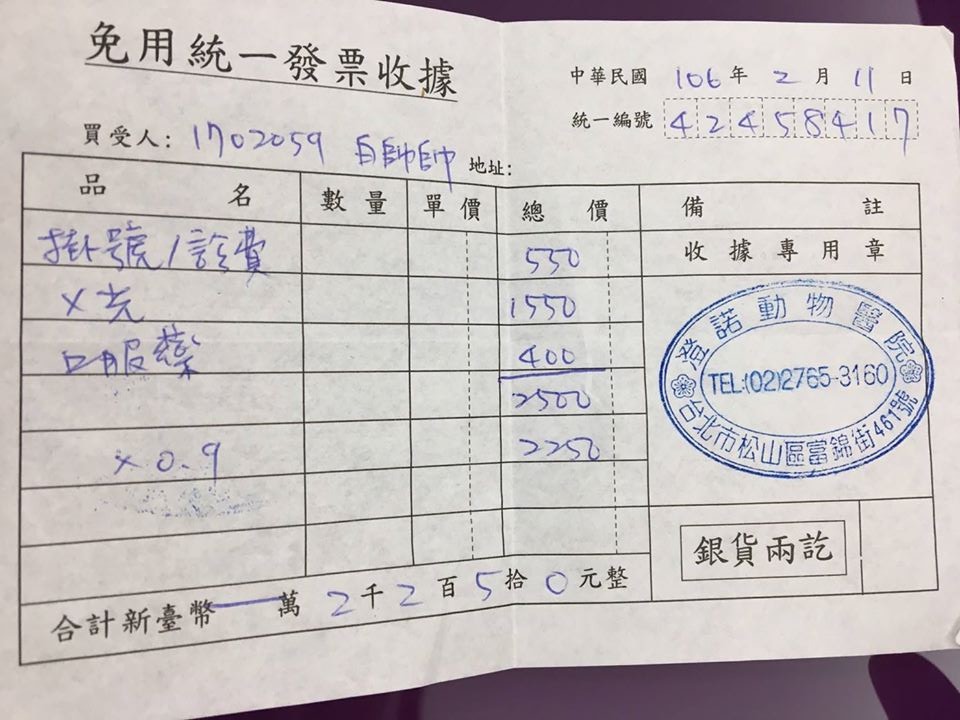 免用統一發票收據
中華民國 106 年 2 月 11 日
統一編號 42458417
買受人: 1702059 自帥帥 地址:
品名 數量 單價 總價 備註
掛號/診費 550 收據專用章
X光 1550
口服藥 400
2500
x 0.9 2250
澄諾動物醫院
TEL:(02)2765-3160
台北市松山區富錦街461號
銀貨兩訖
合計新臺幣 一 萬 2 千 2 百 5 拾 0 元整